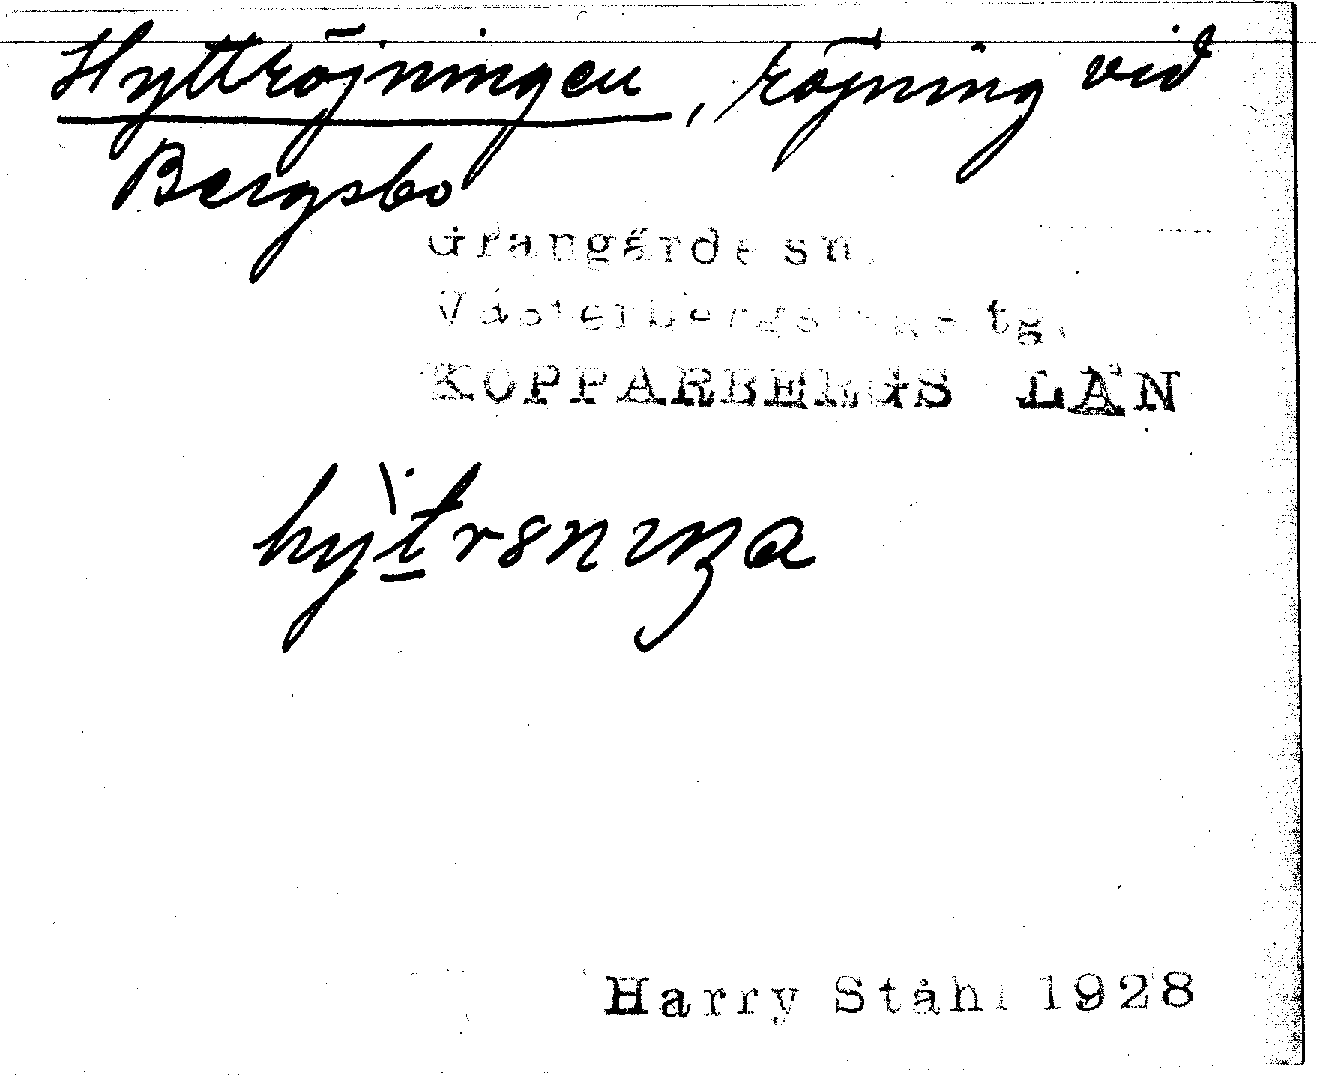 Hyttröjningen, röjning vid
Bergsbo
Grangärde sn.
Västerbergslags tg.
KOPPARBERGS LÄN
Harry Ståhl 1928